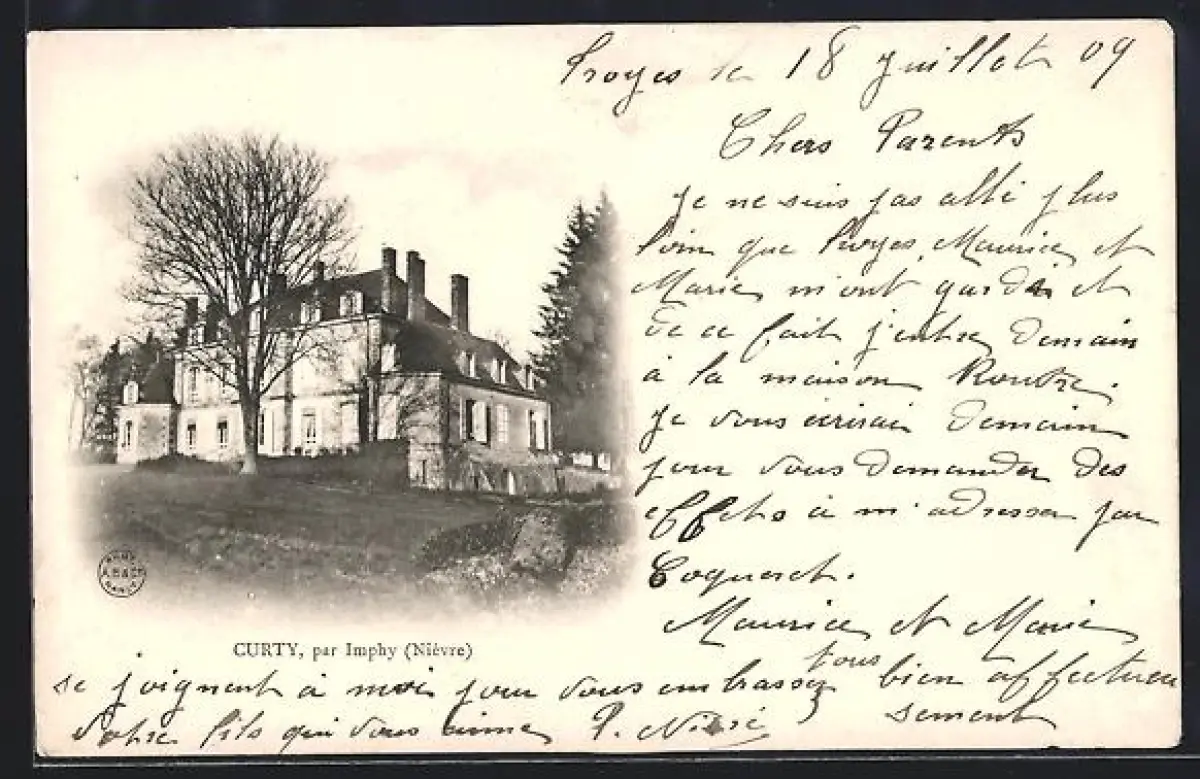 Troyes le 18 Juillet 09
Chers Parents
Je ne suis pas allé plus
loin que Troyes, Maurice et
Marie m'ont gardé et
de ce fait j'entre demain
à la maison Routre.
Je vous écrirai demain
pour vous demander des
effets à m'adresser par
Maurice et Marie
CURTY, par Imphy (Nièvre)
se joignent à moi pour vous embrasser tous bien affectueu
sement
Votre fils qui vous aime P.